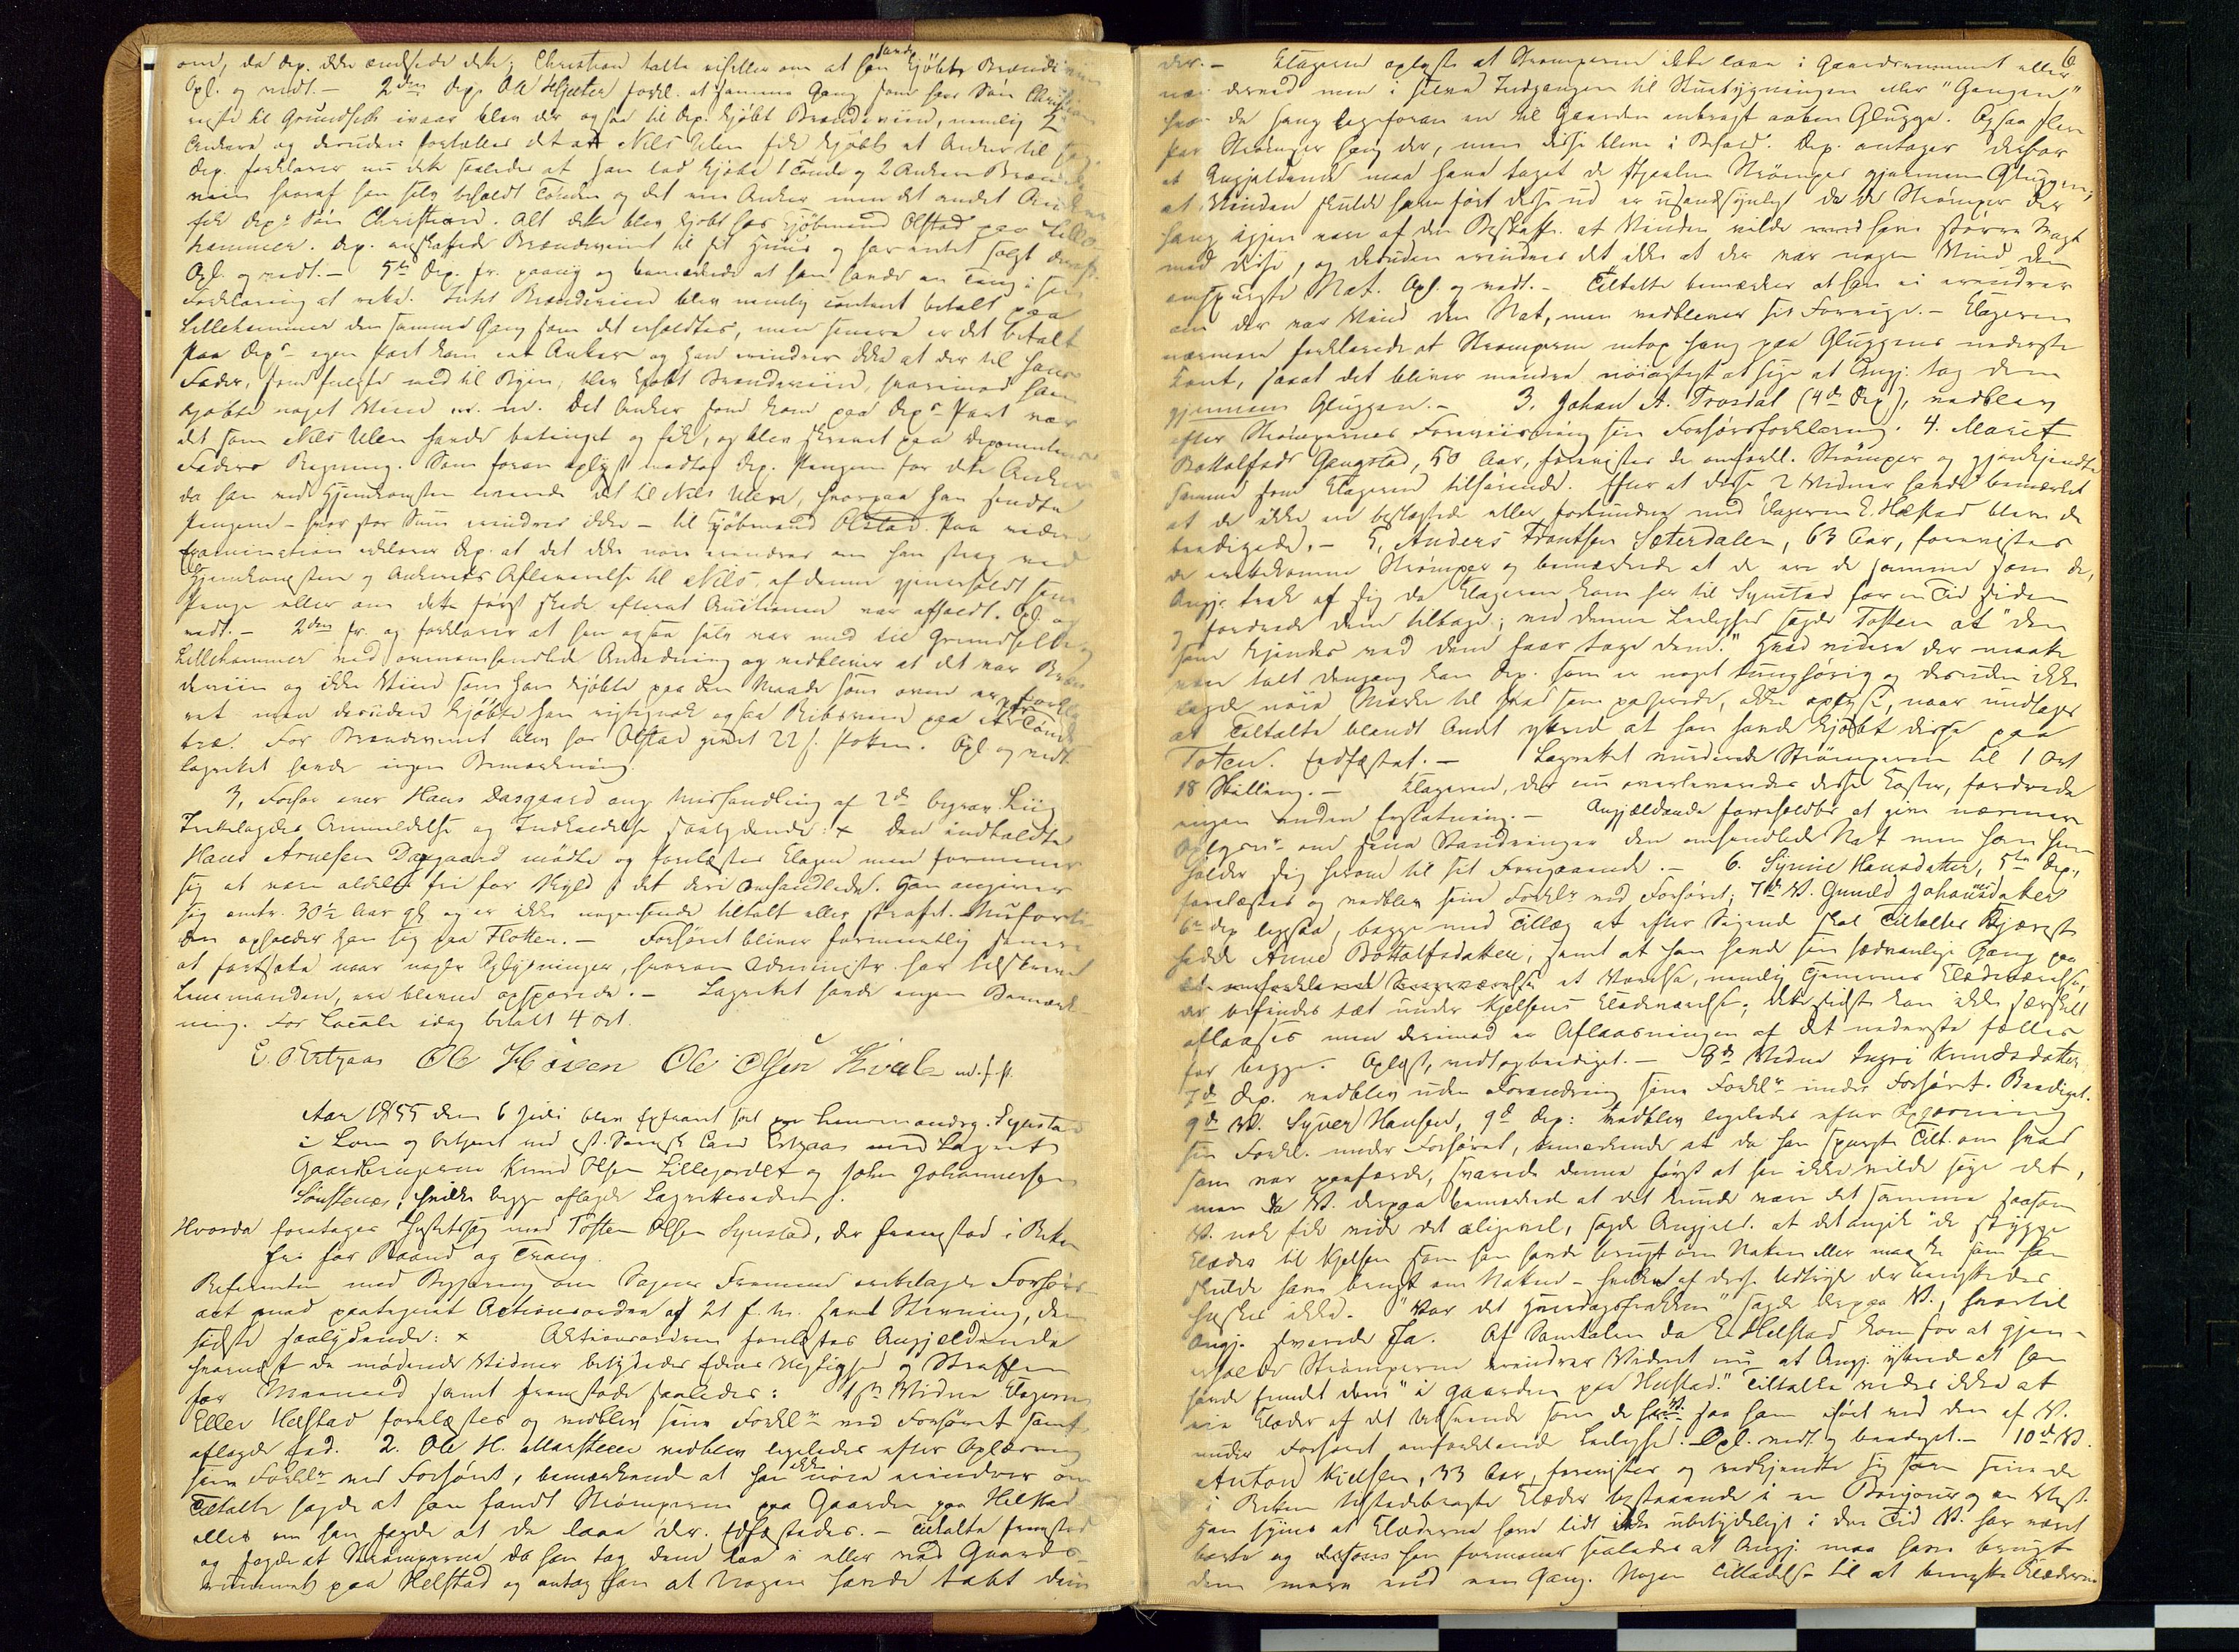 om, da Dep. ikke ændsede dette; Christian talte vistllen om at han havde kjøbt Brændeviin
Opl. og vedt. — 2den Dep. Ole Hjelter forkl. at samme Gang som hans Søn Christian
reiste til Grundset ivaar blev der ogsaa til Dep. kjøbt Brændeviin, nemlig 2
Ankere og desuden fortæller det at Nils Ulen fik kjøbt et Anker til sig.
Dep. forklarer nu dette saaledes at han lod kjøbe 1 Tønde og 2 Ankere Brænde-
viin hvoraf han selv beholdt Tønden og det ene Anker men det andet Anker
fik Deps Søn Christian. Alt dette blev kjøbt hos Kjøbmand Olstad paa Lille-
hammer. Dep. anskaffede Brændeviinet til sit Huus og har intet solgt deraf.
Opl. og vedt. — 5te Dep. fr. paany og bemærkede at han havde en Ting i sin
Forklaring at rette. Intet Brændeviin blev nemlig contant betalt paa
Lillehammer den samme Gang som det erholdtes, men senere er det betalt
Paa Deps egen Part kom eet Anker og han erindrer ikke at der til hans
Fader, som fulgte med til Byen, blev kjøbt Brændeviin, hvorimod han
kjøbte noget Viin m. m. Det Anker som kom paa Deps Part var
det som Nils Ulen havde betinget og fik, og blev skrevet paa Deponentens
Faders Regning. Som foran oplyst modtog Dep. Pengene for dette Anker
da han ved Hjemkomsten leverede det til Nils Ulen, hvorpaa han sendte
Pengene – hvor stor Sum erindres ikke – til Kjøbmand Olstad. Paa videre
Examination erklærer Dep. at det ikke nøie erindres om han strax ved
Hjemkomsten og Ankerets Aflevering til Nils af denne gjenerholdt sine
Penge eller om dette først skede efterat Auctionen var afholdt. Opl. og
vedt. — 2den fr. og forklarer at han ogsaa selv var med til Grundset og
Lillehammer ved ommeldte Anledning og vedbliver at det var Bræn-
deviin og ikke Viin som han kjøbte paa den Maade som oven er forkla-
ret men desuden kjøbte han rigtignok ogsaa Ribsviin paa et Tønde-
træ. For Brændeviinet blev hos Olstad givet 22 s. Potten. Opl. og vedt.
Lagrettet havde ingen Bemærkning.
3, Forhør over Hans Dasgaard ang. Mishandling af 2de begrav. Liig
Indkaldelse Anmeldelse og Indkaldelse saalydende: × Den indkaldte
Hans Arnesen Dasgaard mødte og forelæstes Klagen men formener
sig at være aldeles fri for Skyld i det deri omhandlede. Han angiver
sig omtr. 30½ Aar gl. og er ikke nogensinde tiltalt eller straffet. Nuforti-
den opholder han sig paa Flotten. — Forhøret bliver formeentlig senere
at fortsætte naar nogle Oplysninger, hvorom Administr. har tilskrevet
Lensmanden, ere blevne opsporede. — Lagrettet havde ingen Bemærk-
ning. For Locale idag betalt 4 ort.
Ole Høien Ole Olsen Kvale m. f. P.
Aar 1855 den 6 Juli blev Extraret sat paa Lensmandsg. Synstad
i Lom og betjent ved const. Sorensk. Cand. med Lagrett
Gaardbrugerne Knud Olsen Lillejordet og Johan Johannesen
Sønsteneæs, hvilke begge aflagde Lagretteseden.
Hvorda foretages Justitssag mod Tosten Olsen Synstad, der fremstod i Retten
fri for Baand og Tvang.
Referenten med Begjæring om Sagens Fremme irettelagde Forhørs-
act med paategnet Actionsordre af 21 f. M. samt Stevning, den
sidste saalydende: × Aktionsordren forelæstes Angjeldende
hvornæst de mødende Vidner betydedes Edens Vigtighed og Straffen
for Meeneed samt fremstode saaledes: 1ste Vidne Klageren
Eller Helstad forelæstes og vedblev sin Forklr ved Forhøret samt
aflagde Eed. 2. Ole H. Marsteen vedblev ligeledes efter Oplæsning
sin Forklr ved Forhøret, bemærkende at han ikke nøie erindrer om
Tiltalte sagde at han fandt Strømperne paa Gaarden paa Helstad
eller om han sagde at de laae der. Edfæstedes. — Tiltalte fremstod
og sagde at Strømperne da han tog dem laae i eller ved Gaards-
rummet paa Helstad og antog han at Nogen havde tabt dem
6
der. — Klageren oplyste at Strømperne ikke laae i Gaardsrummet eller
nær derved men i selve Indgangen til Stuebygningen eller "Gangen"
hvor de hang ligeforan en til Gaarden anbragt aaben Glugge. Ogsaa flere
Par Strømper hang der, men disse bleve i Behold. Dep. antager derfor
at Angjeldende maa have taget de stjaalne Strømper gjennem Gluggen;
at Vinden skulde have ført disse ud er usandsynligt da de Strømper der
hang igjen vare af den Beskaff. at Vinden vilde have større Magt
med disse, og desuden erindres det ikke at der var nogen Vind den
omspurgte Nat. Opl. og vedt. — Tiltalte bemærker at han ei erindrer
om der var Vind den Nat, men vedbliver sit Forrige. — Klageren
nærmere forklarede at Strømperne netop hang paa Gluggens nederste
Kant, saaat det bliver mindre nøiagtigt at sige at Angj. tog dem
gjennem Gluggen. — 3. Johan A. Trosdal (4de Dep), vedblev
efter Strømpernes Foreviisning sin Forhørsforklaring. 4. Marit
Bottolfsdr Gangstad, 50 Aar, forevistes de omforkl. Strømper og gjenkjendte
samme som Klageren tilhørende. Efter at disse 2 Vidner havde bemærket
at de ikke ere beslægtede eller forbundne med Klageren E. Helstad bleve de
beedigede. — 5, Anders Frantsen Sæterdalen, 63 Aar, forevistes
de irettekomne Strømper og bemærkede at de ere de samme som de,
Angj. trak af sig da Klageren kom her til Synstad for en Tid siden
og fordrede dem tilbage; ved denne Leilighed sagde Tosten at "den
som kjendes ved dem faar tage dem." Hvad videre der maatte
være talt dengang kan Dep. som er noget tunghørig og desuden ikke
lagde nøie Mærke til hvad som passerede, ikke oplyse, naar undtages
at Tiltalte blandt Andet ytrede at han havde kjøbt disse paa
Toten. Edfæstet. — Lagrettet vurderede Strømperne til 1 Ort
18 Skilling. — Klageren, der nu overleveredes disse Koster, fordrede
ingen anden Erstatning. — Angjældende foreholdtes at give nærmere
Oplysn. om sine Vandringer den omhandlede Nat men han hen-
holder sig herom til sit Foregaaende. — 6. Synnie Hansdatter, 5te Dep.,
forelæstes og vedblev sin Forklr ved Forhøret; 7de V. Gunild Johannesdatter
6te Dep ligesaa, begge med Tillæg at efter Sigende skal Tiltaltes Kjæreste
hedde Anne Bottolfsdatter, samt at han havde sin sædvanlige Gang paa
et Værelse, nemlig Tjenernes Klædeværelse,
der befindes tæt under Kjelsens Klædeværelse; dette sidste kan ikke særskilt
aflaases men derimod er Aflaasningen af det nederste fælles
for begge. Oplæst, vedtog beediget. — 8de Vidne Ingri Knudsdatter
7de Dep. vedblev uden Forandring sin Forklr under Forhøret. Beediget.
9de V. Syver Hansen, 9de Dep: vedblev ligeledes efter Oplæsning
sin Forkl. under Forhøret, bemærkende at da han spurgte Tilt. om hvad
som var paafærde, svarede denne først at han ikke vilde sige det,
men da V. derpaa bemærkede at det kunde være det samme saasom
V. nok fik vide det aligevel, sagde Angjeld. at det angik "de stygge
Klæder til Kjelsen som han havde brugt om Natten eller maatte som han
skulde have brugt om Natten – hvilken af disse Udtryk der benyttedes
huskes ikke. "Var det Hverdagsfrakken" sagde derpaa V., hvortil
Angj. svarede Ja. Af Samtalen da E. Helstad kom for at gjen-
erholde Strømperne erindrer Vidnet nu at Angj. ytrede at han
havde fundet dem "i Gaarden paa Helstad". Tiltalte vides ikke at
eie Klæder af det Udseende som de V. saa ham iført ved den af V.
under Forhøret omforklarede Leilighed. Opl. vedt. og beediget. — 10de V.
Anton Kielsen, 33 Aar, forevistes og vedkjendte sig som sine de
i Retten tilstedebragte Klæder bestaaende i en Bonjour og en Vest.
Han synes at Klæderne have lidt ikke ubetydeligt i den Tid V. har været
borte og han formener saaledes at Angj. maa have brugt
dem mere end een Gang. Nogen Tilladelse til at benytte Klæderne